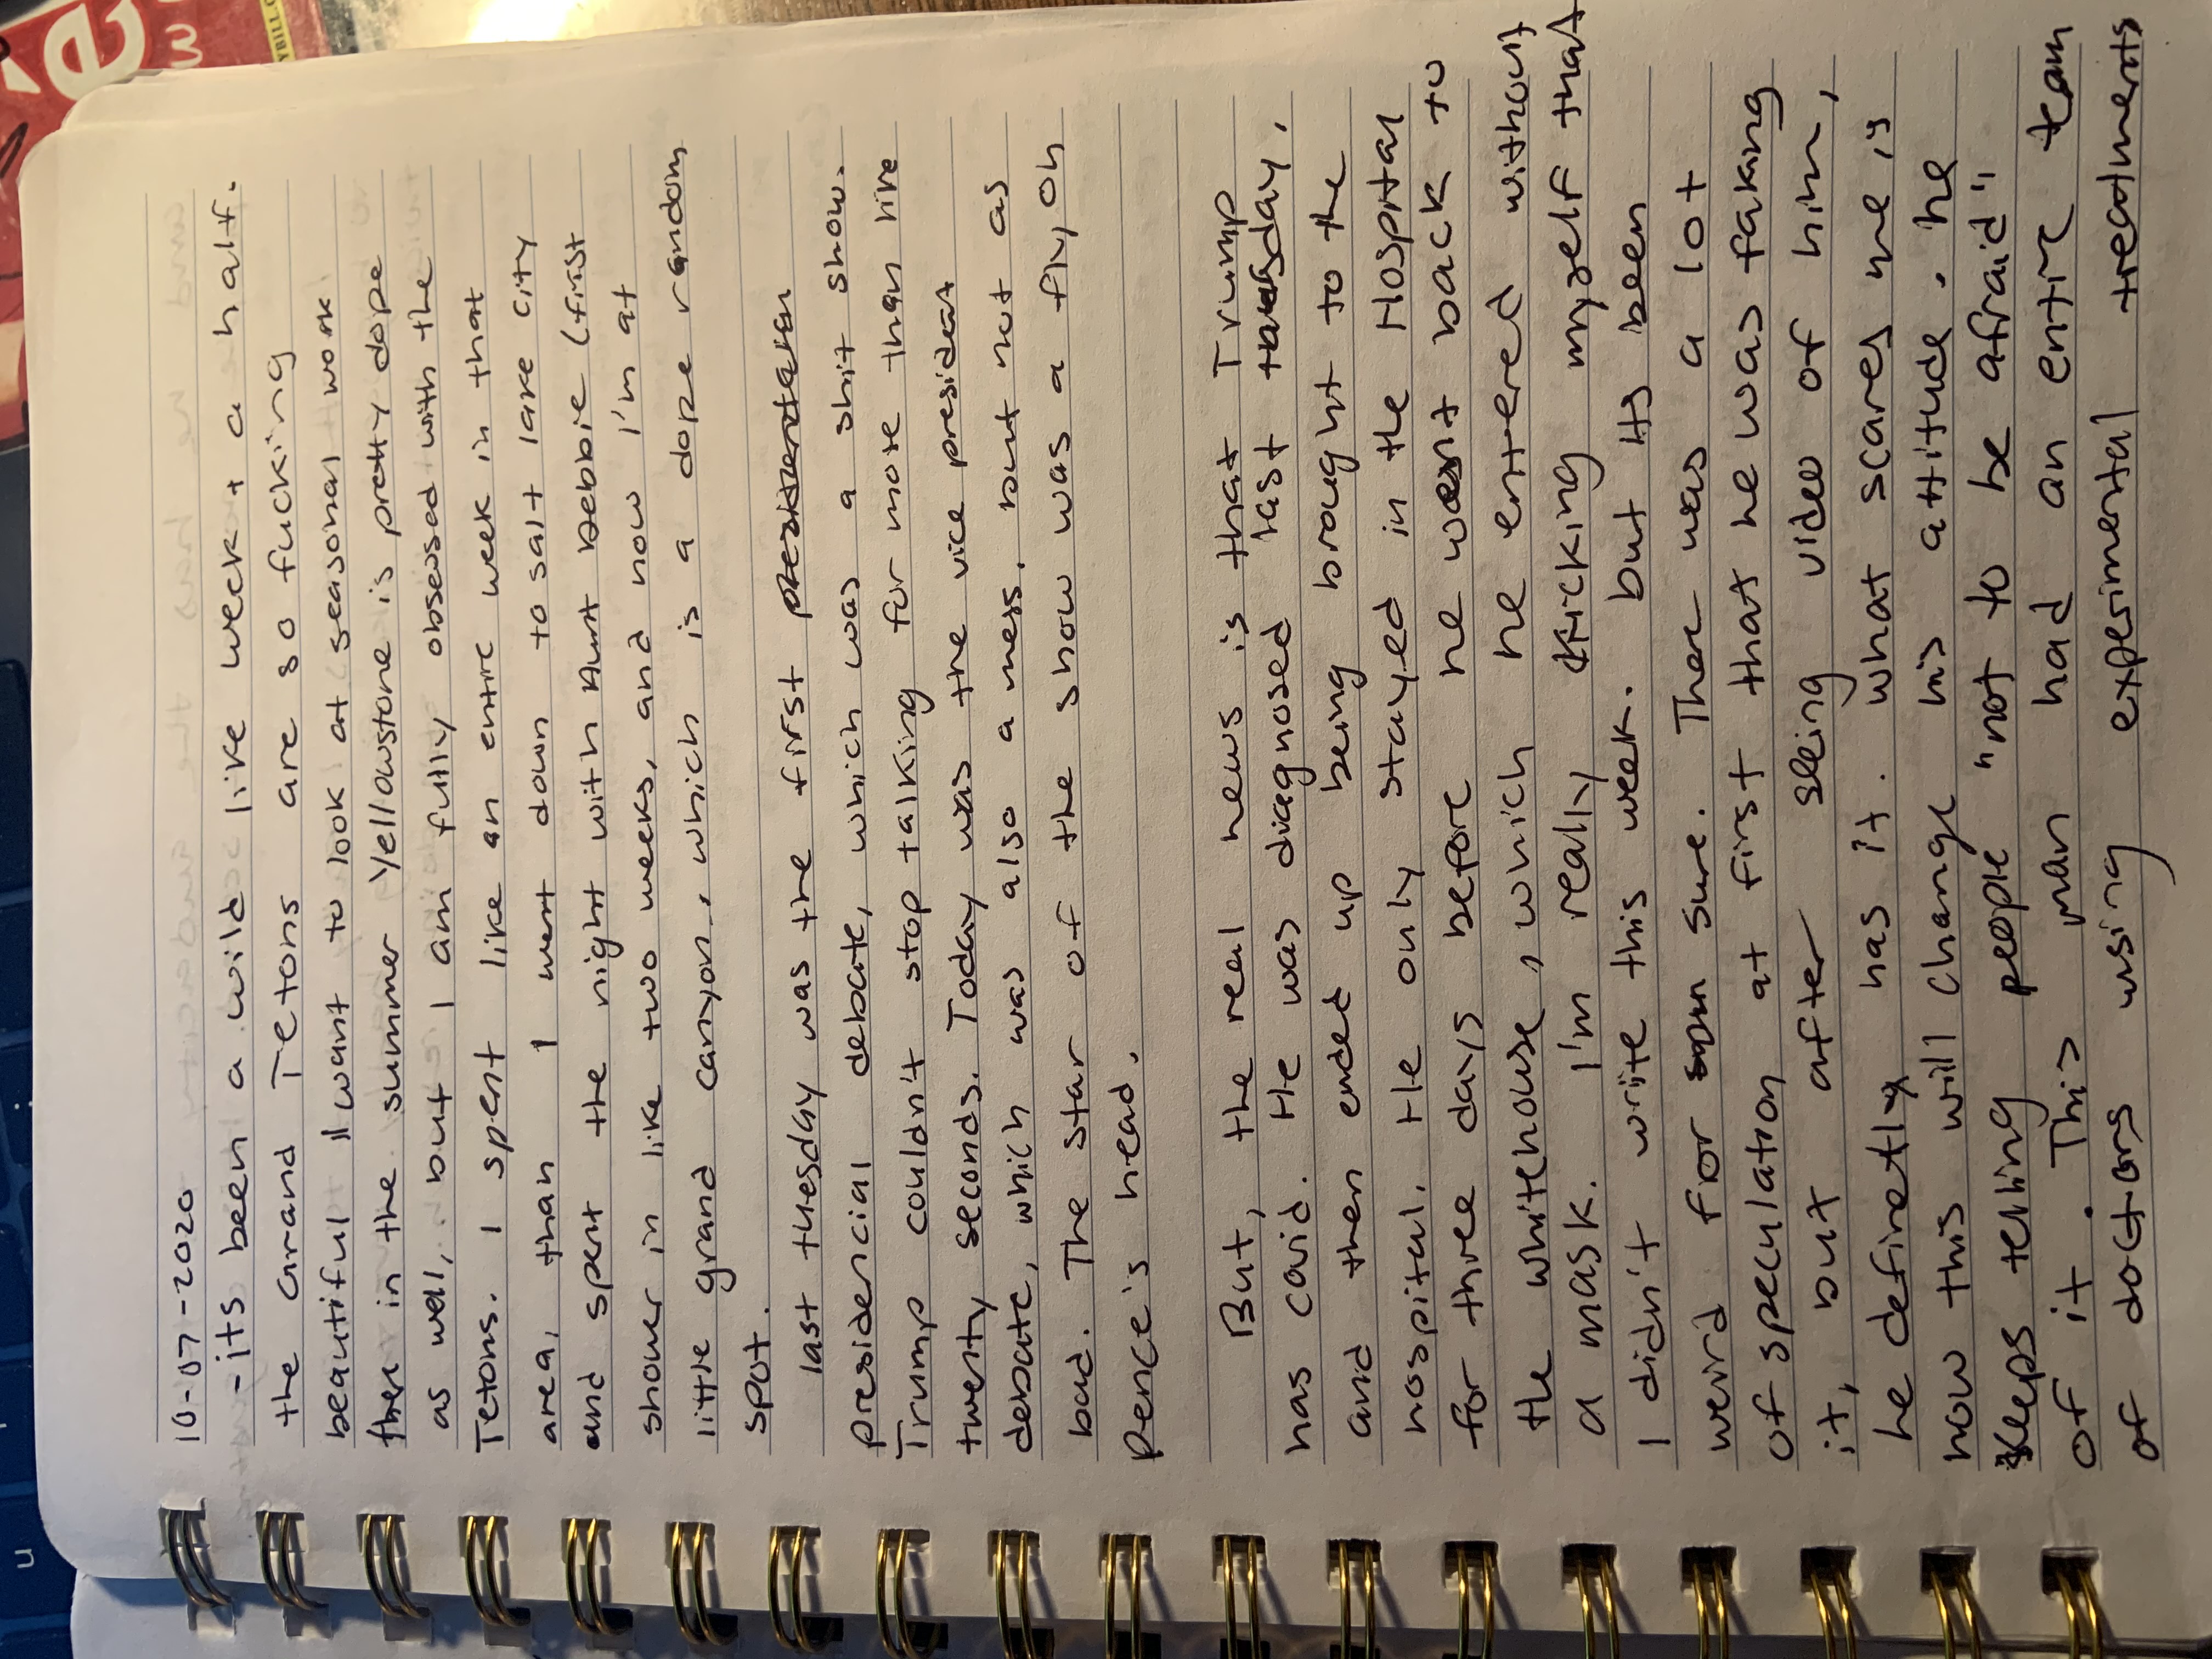 10-07-2020
-its been a wild like week + a half.
the Grand Tetons are so fucking
beautiful I want to look at seasonal work
there in the summer Yellowstone is pretty dope
as well, but I am fully obsessed with the
Tetons. I spent like an entire week in that
area, than I went down to salt lake city
and spent the night with Aunt Debbie (first
shower in like two weeks, and now I'm at
little grand canyon, which is a dope random
spot.
last tuesday was the first
presidencial debate, which was a shit show.
Trump couldn't stop talking for more than like
twenty seconds. Today was the vice president
debate, which was also a mess, but not as
bad. The star of the show was a fly, on
Pence's head.
But, the real news is that Trump
has covid. He was diagnosed last
and then ended up being brought to the
hospital. He only stayed in the Hospital
for three days before he went back to
the whitehouse, which he entered without
a mask. I'm really kicking myself that
I didn't write this week. but its been
weird for sure. There was a lot
of speculation at first that he was faking
it, but after seeing video of him,
he definetly has it. what scares me, is
how this will change his attitude. he
keeps telling people "not to be afraid"
of it. This man had an entire team
of doctors using experimental treatments
u